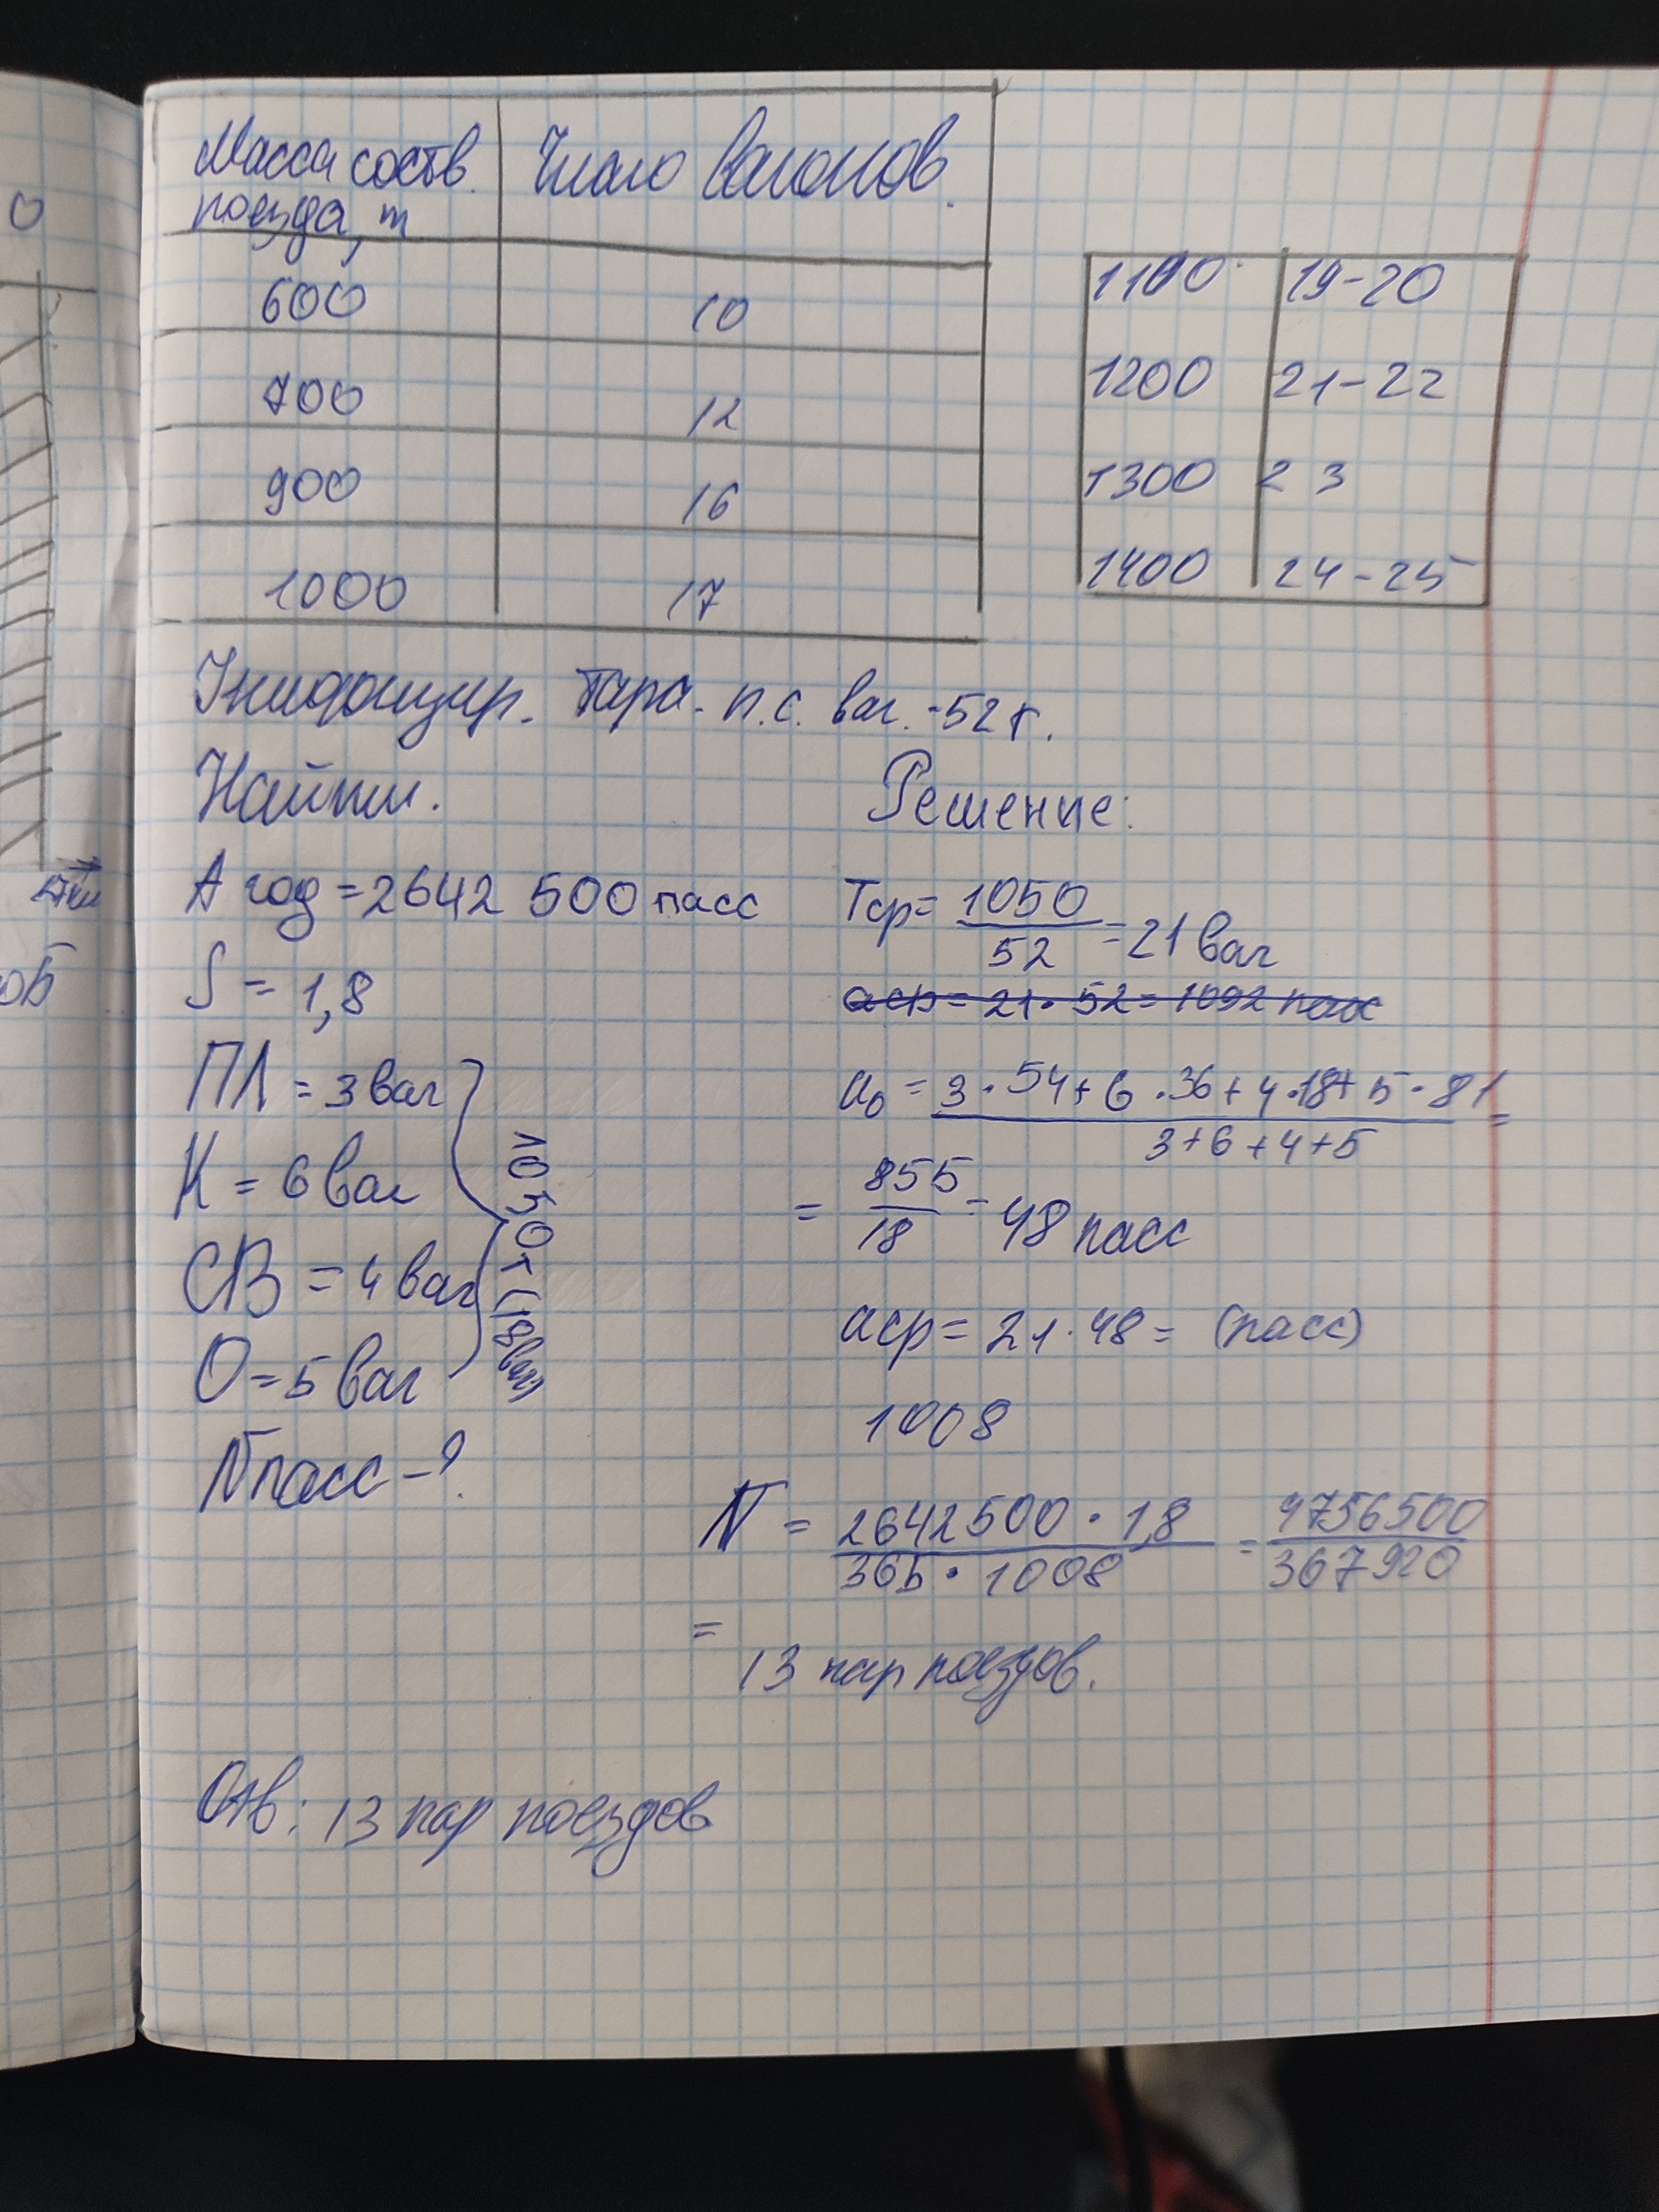 Масса соств. Число вагонов.
поезда, т
600 10
700 12
900 16
1000 17
1100 19-20
1200 21-22
1300 23
1400 24-25
Унифицир. тара. п.с. ваг. -52т.
Найти.
A год = 2642 500 пасс
S = 1,8
ПЛ = 3 ваг
К = 6 ваг
СВ = 4 ваг
О = 5 ваг
1050т (18ваг)
Nпасс - ?
Решение:
Tср = 1050 / 52 = 21 ваг
aср = 21 · 52 = 1092 пасс
a₀ = 3 · 54 + 6 · 36 + 4 · 18 + 5 · 81 / 3+6+4+5 =
= 855 / 18 = 48 пасс
aср = 21 · 48 = (пасс)
1008
N = 2642500 · 1,8 / 365 · 1008 = 4756500 / 367920
=
13 пар поездов.
Отв: 13 пар поездов
О